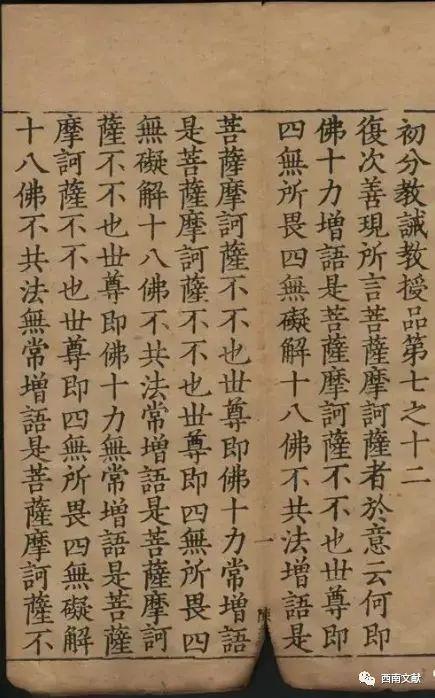 初分教誡教授品第七之十二
復次善現所言菩薩摩訶薩者於意云何即
佛十力增語是菩薩摩訶薩不不也世尊即
四無所畏四無礙解十八佛不共法增語是
一
陳
菩薩摩訶薩不不也世尊即佛十力常增語
是菩薩摩訶薩不不也世尊即四無所畏四
無礙解十八佛不共法常增語是菩薩摩訶
薩不不也世尊即佛十力無常增語是菩薩
摩訶薩不不也世尊即四無所畏四無礙解
十八佛不共法無常增語是菩薩摩訶薩不
西南文献